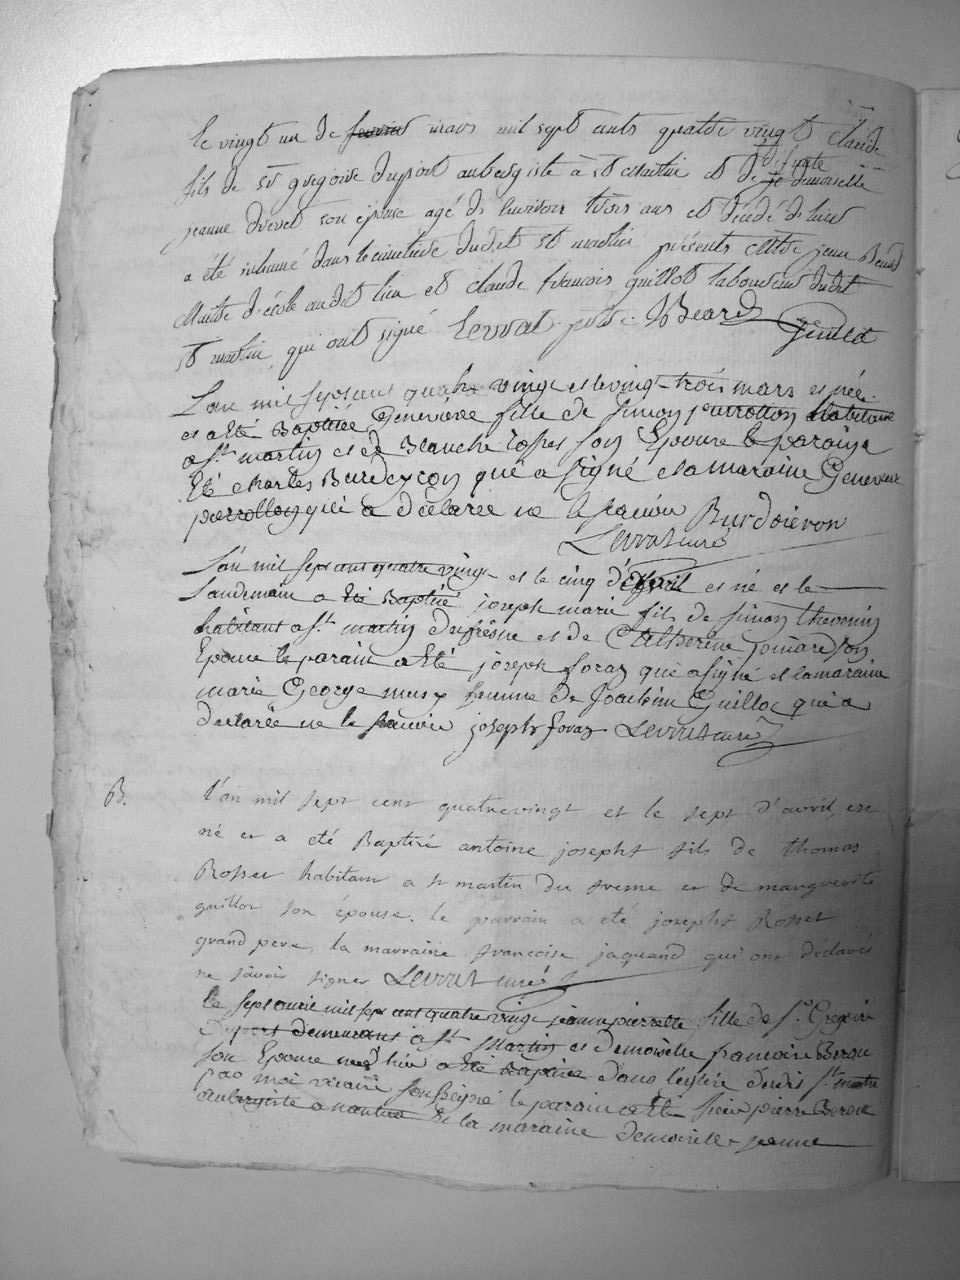 le vingt un de fevrier mars mil sept cents quatre vingt claude
fils de sr gregoire duport aubergiste à st martin et de defunte demoiselle
jeanne drevet son épouse agé d'environ trois ans et décédé d'hier
a été inhumé dans le cimetière dudit st martin présents
Maitre d'école audit lieu et claude francois guillot laboureur dudit
st martin qui ont signé Levrat Beard Guillot
L'an mil sept cent quatre vingt et le vingt-trois mars est née
et a eté Baptisée Genevieve fille de Simon perrollon habitant
a st martin et de Blanche son Epouse le parain a
Eté charles qui a signé et la maraine Genevieve
perrollon qui a déclarée ne le savoir
Levrat curé
L'an mil sept cent quatre vingt et le cinq d'avril est né et le
landemain a eté Baptisé joseph marie fils de simon thevenin
habitant a st martin dufresne et de Catherine son
Epouse le parain a eté joseph foraz que a signé et la maraine
marie George femme de Joachim Guillot qui a
declarée ne le savoir joseph foraz Levrat curé
B. l'an mil sept cent quatrevingt et le sept d'avril est
né et a eté Baptisé antoine josepht fils de thomas
Rosset habitant a st martin du frenne et de marguerite
guillot son épouse. le parrain a eté josepht Rosset
grand pere, la marraine francoise jaquand qui ont déclarés
ne savoir signer Levrat curé
le sept avril mil sept cent quatre vingt jeanne pierrette fille de sr Gregoire
Duport demeurant a st Martin et demoiselle francoise
son Epouse née hier a eté Baptisée dans l'eglise dudit st martin
par moi vicaire soussigné le parain a eté sieur pierre
aubergiste a nantua et la maraine demoiselle jeanne